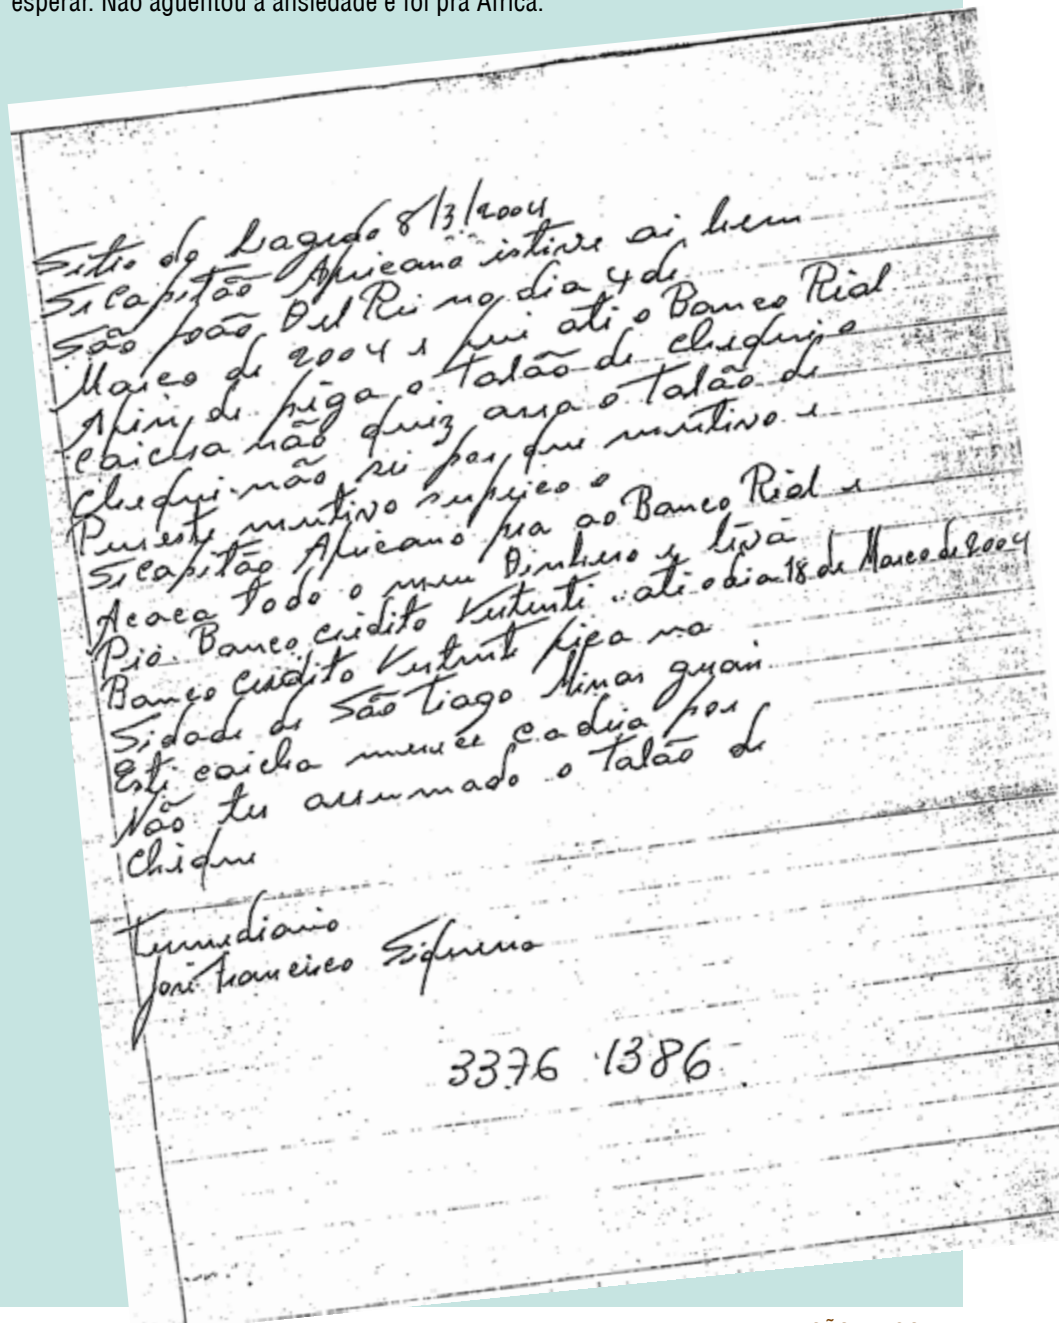 esperar. Não aguentou a ansiedade e foi pra África.
Sitio do Lagedo 8/3/2004
Sicapitão Africano istive ai hem
São João Del Rei no dia 4 de
Março de 2004 e fui ati o Banco Rial
Afin, de piga o Talão de chequi o
caicha não quiz arra o Talão de
chequi não sei por que mutivo e
Pureste mutivo suprico o
Sicapitão Africano pra ao Banco Rial e
Acaca Todo o meu Dinhero e livá
Prò Banco cridito Vertenti ati o dia 18 de Março de 2004
Banco Cridito Vertente fica na
Sidade de São Tiago Minas
Esti caicha merece cadeia por
Não ter arrumado o Talão de
Chique
José Francisco
3376 1386